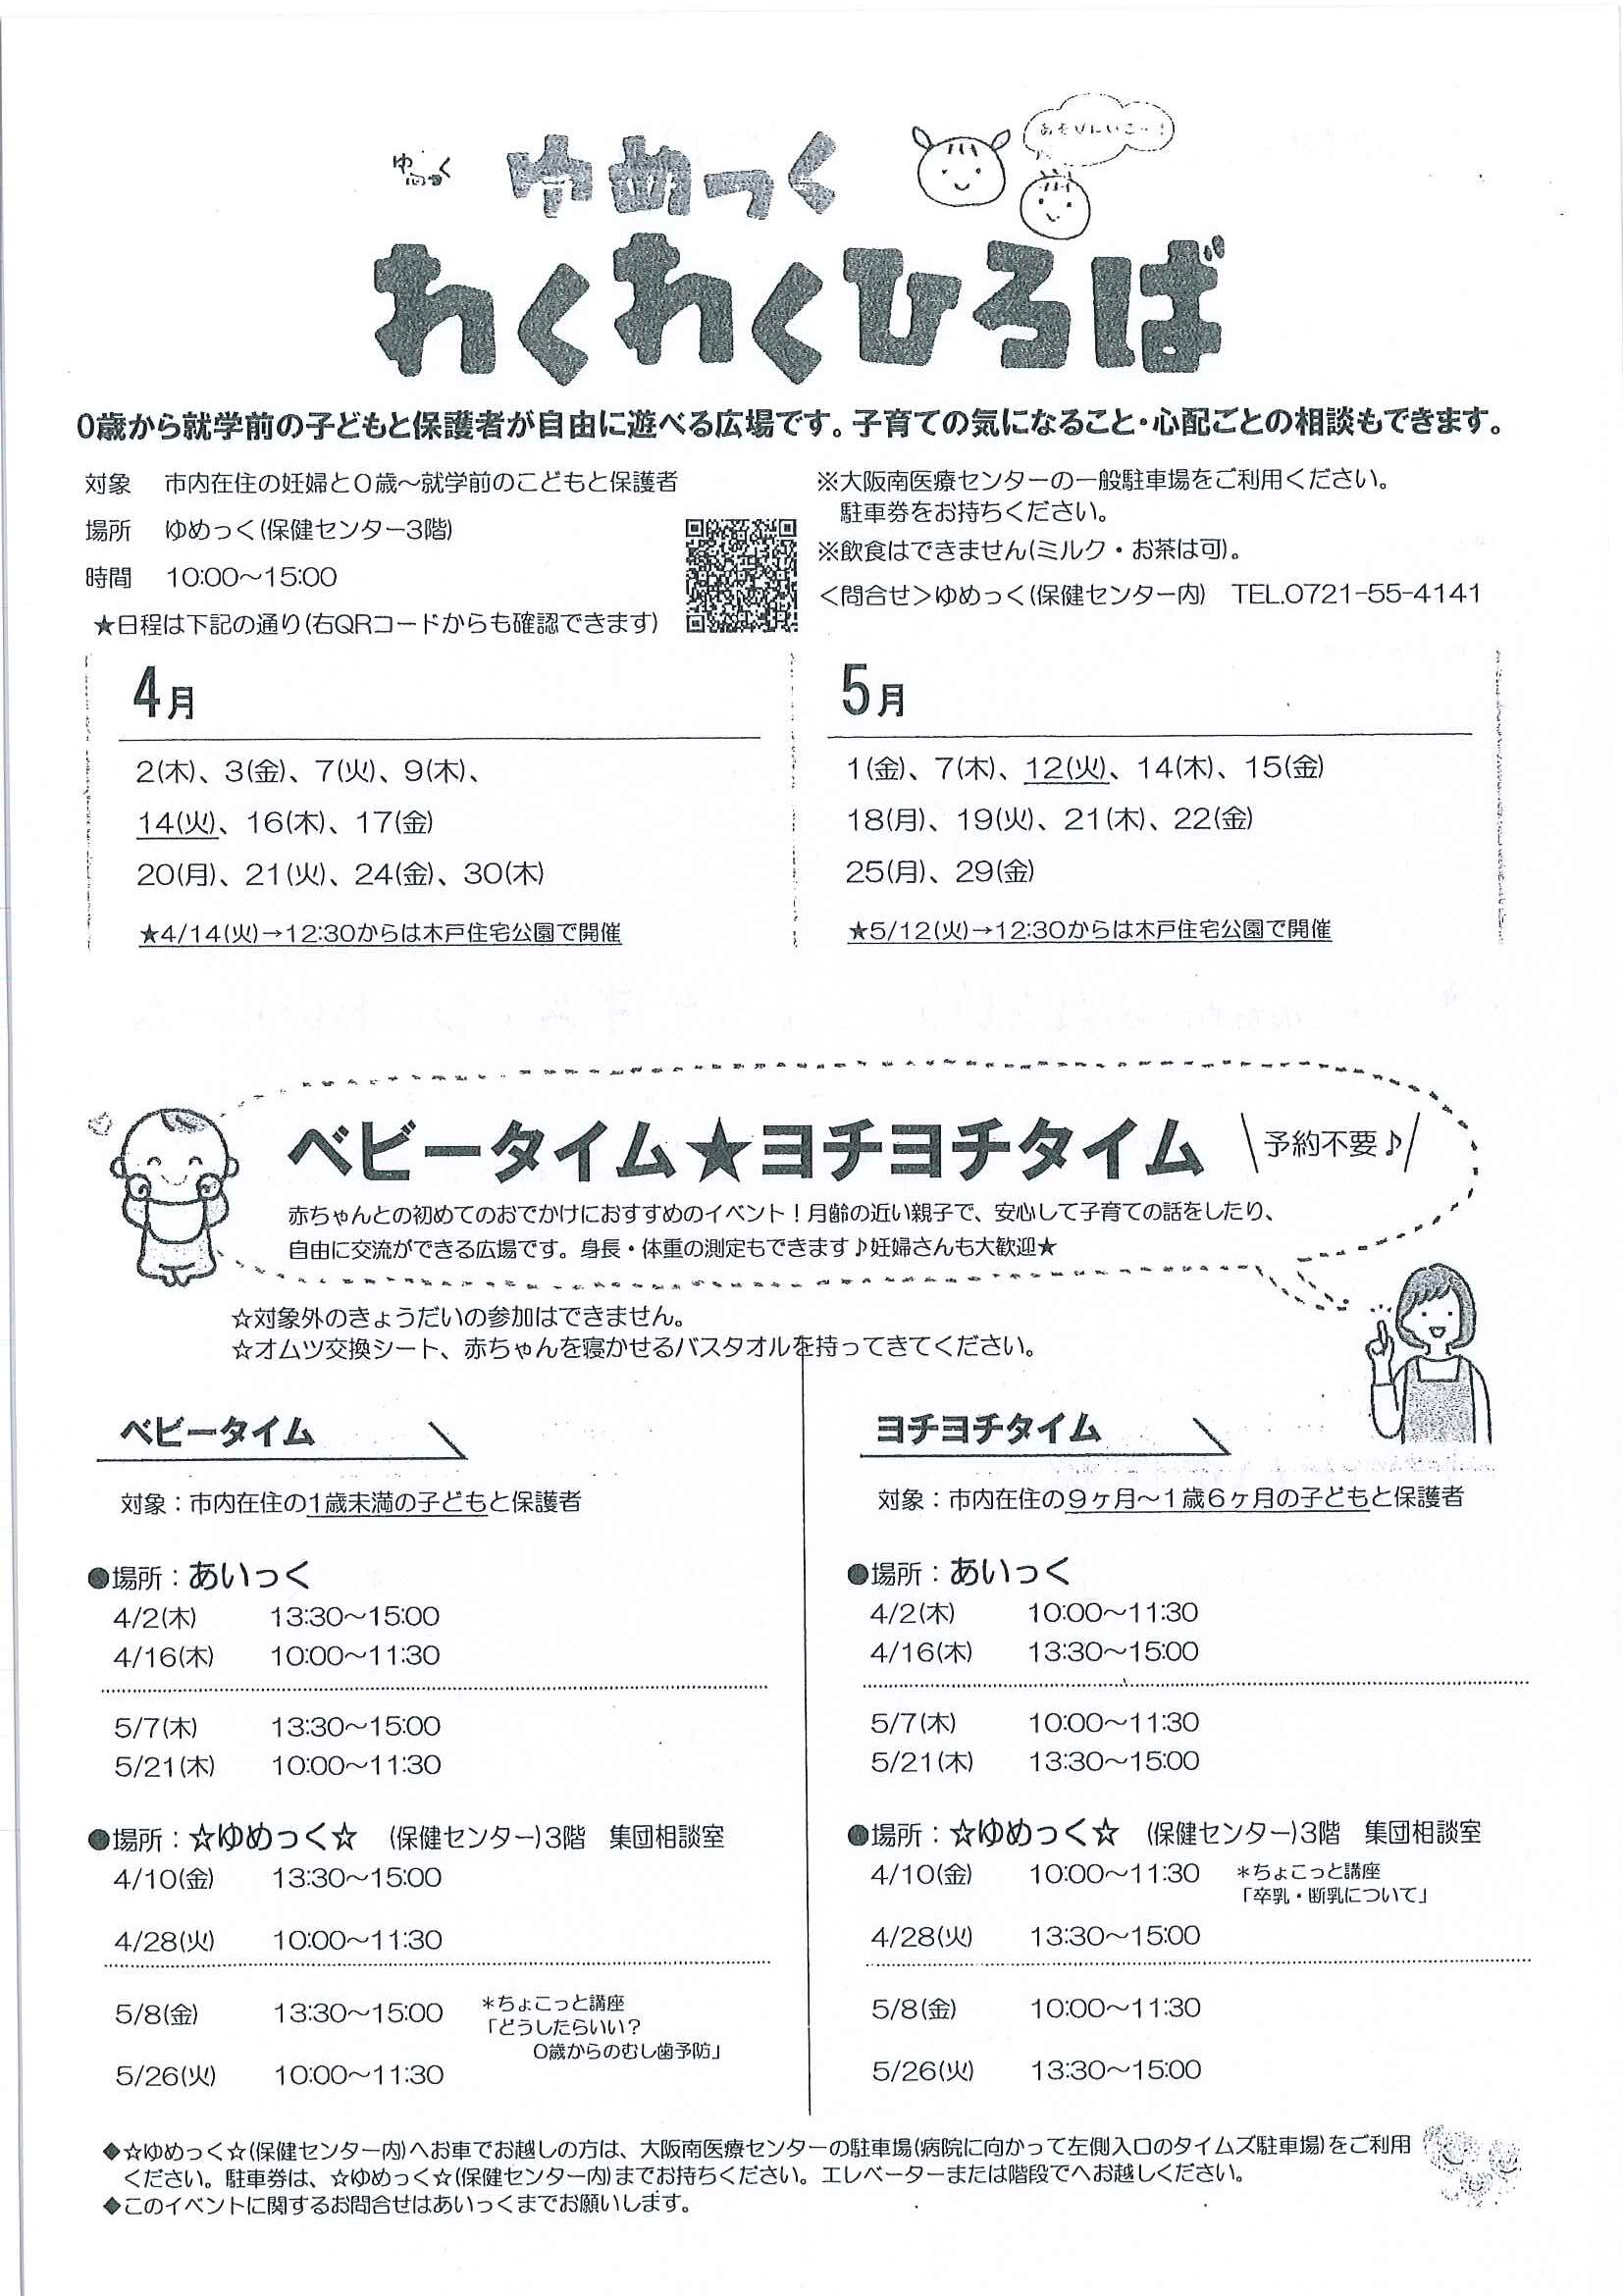 ゆめっく
ゆめっく
あそびにいこ〜！
わくわくひろば
0歳から就学前の子どもと保護者が自由に遊べる広場です。子育ての気になること・心配ごとの相談もできます。
対象　市内在住の妊婦と０歳～就学前のこどもと保護者
場所　ゆめっく(保健センター3階)
時間　10:00～15:00
★日程は下記の通り(右QRコードからも確認できます)
※大阪南医療センターの一般駐車場をご利用ください。
駐車券をお持ちください。
※飲食はできません(ミルク・お茶は可)。
＜問合せ＞ゆめっく(保健センター内)　TEL.0721-55-4141
4月
2(木)、3(金)、7(火)、9(木)、
14(火)、16(木)、17(金)
20(月)、21(火)、24(金)、30(木)
★4/14(火)→12:30からは木戸住宅公園で開催
5月
1(金)、7(木)、12(火)、14(木)、15(金)
18(月)、19(火)、21(木)、22(金)
25(月)、29(金)
★5/12(火)→12:30からは木戸住宅公園で開催
ベビータイム★ヨチヨチタイム
\予約不要♪/
赤ちゃんとの初めてのおでかけにおすすめのイベント！月齢の近い親子で、安心して子育ての話をしたり、
自由に交流ができる広場です。身長・体重の測定もできます♪妊婦さんも大歓迎★
☆対象外のきょうだいの参加はできません。
☆オムツ交換シート、赤ちゃんを寝かせるバスタオルを持ってきてください。
ベビータイム
対象：市内在住の1歳未満の子どもと保護者
●場所：あいっく
4/2(木)　13:30～15:00
4/16(木)　10:00～11:30
5/7(木)　13:30～15:00
5/21(木)　10:00～11:30
●場所：☆ゆめっく☆　(保健センター)3階　集団相談室
4/10(金)　13:30～15:00
4/28(火)　10:00～11:30
5/8(金)　13:30～15:00　＊ちょこっと講座
「どうしたらいい？
0歳からのむし歯予防」
5/26(火)　10:00～11:30
ヨチヨチタイム
対象：市内在住の９ヶ月～１歳６ヶ月の子どもと保護者
●場所：あいっく
4/2(木)　10:00～11:30
4/16(木)　13:30～15:00
5/7(木)　10:00～11:30
5/21(木)　13:30～15:00
●場所：☆ゆめっく☆　(保健センター)3階　集団相談室
4/10(金)　10:00～11:30　＊ちょこっと講座
「卒乳・断乳について」
4/28(火)　13:30～15:00
5/8(金)　10:00～11:30
5/26(火)　13:30～15:00
◆☆ゆめっく☆(保健センター内)へお車でお越しの方は、大阪南医療センターの駐車場(病院に向かって左側入口のタイムズ駐車場)をご利用
ください。駐車券は、☆ゆめっく☆(保健センター内)までお持ちください。エレベーターまたは階段でへお越しください。
◆このイベントに関するお問合せはあいっくまでお願いします。